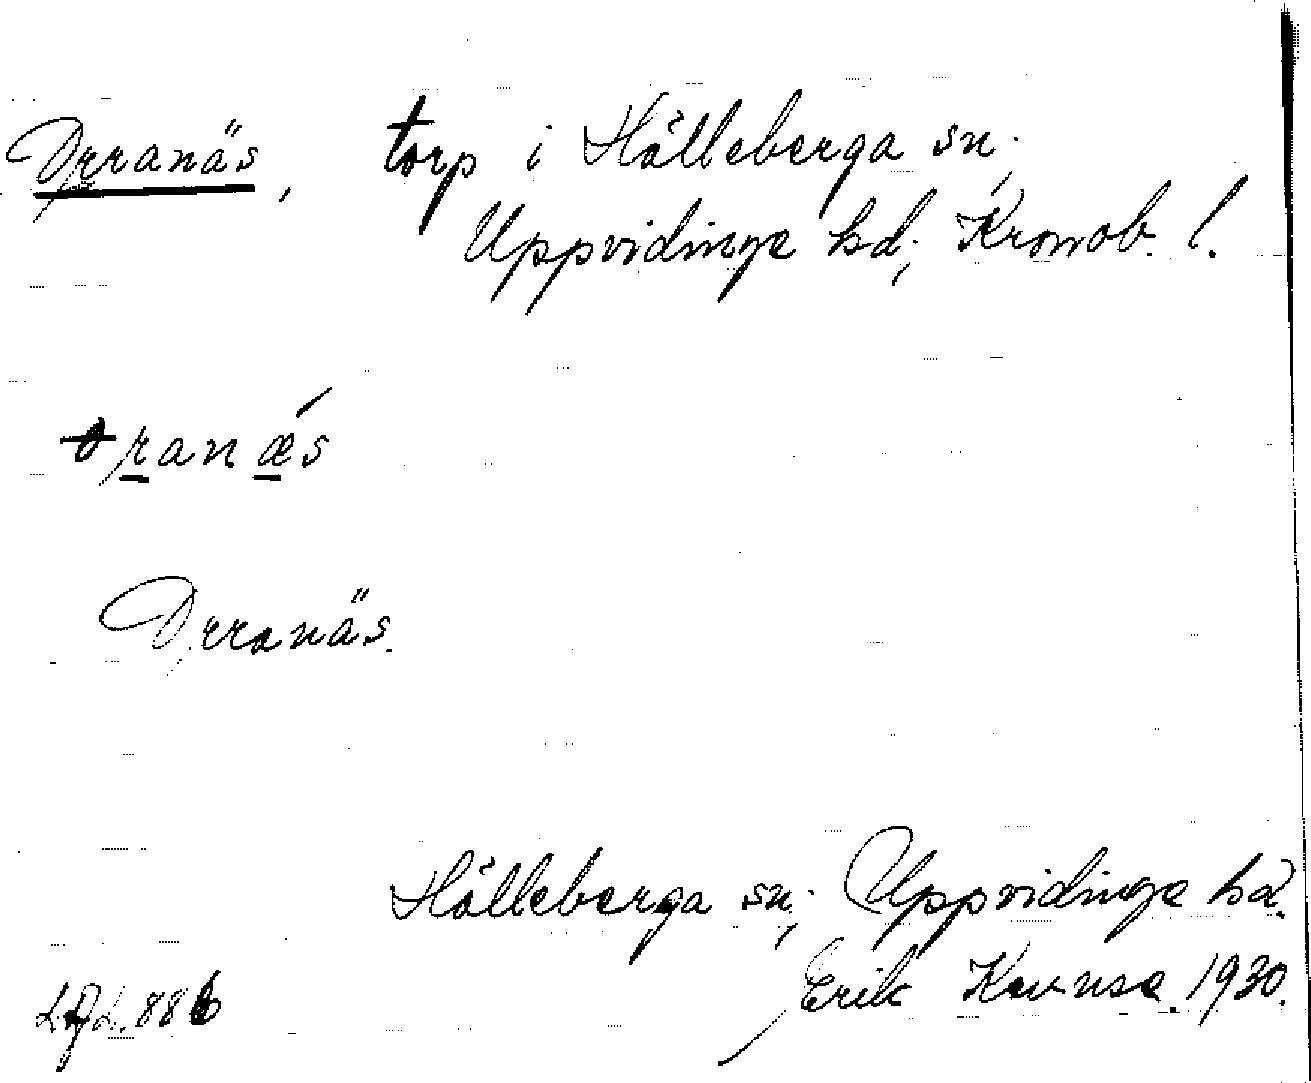 Orranäs, torp i Hälleberga sn.,
Uppvidinge hd., Kronob. l.
oranǽs
Orranäs.
Hälleberga sn., Uppvidinge hd.
Erik 1930.